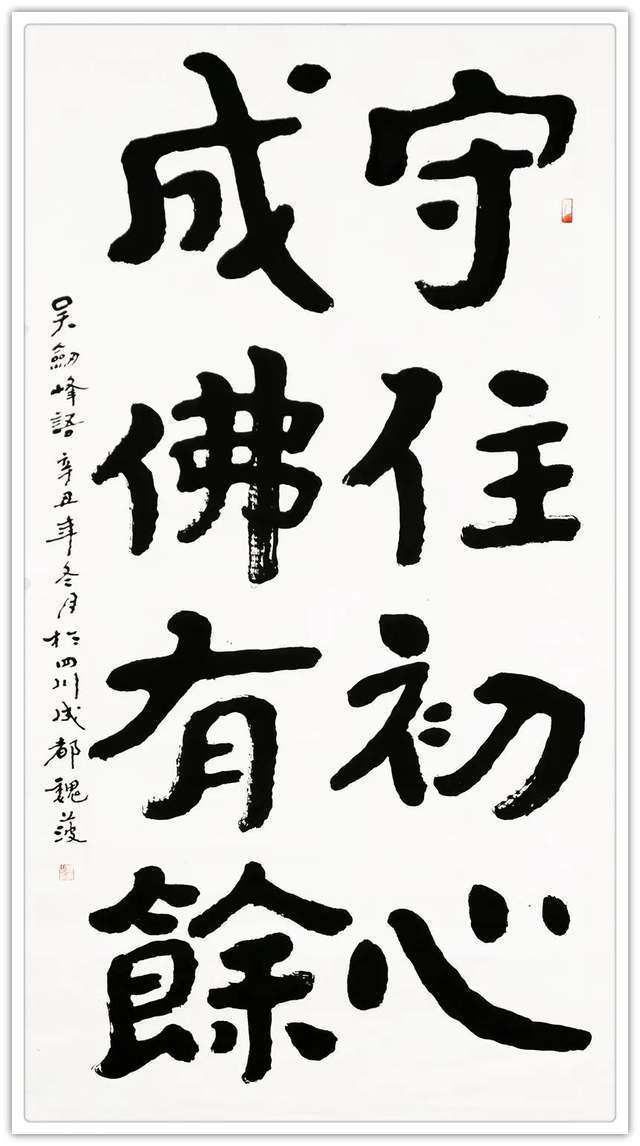 守住初心
成佛有餘
吴劒峰語 辛丑年冬月於四川成都魏菠